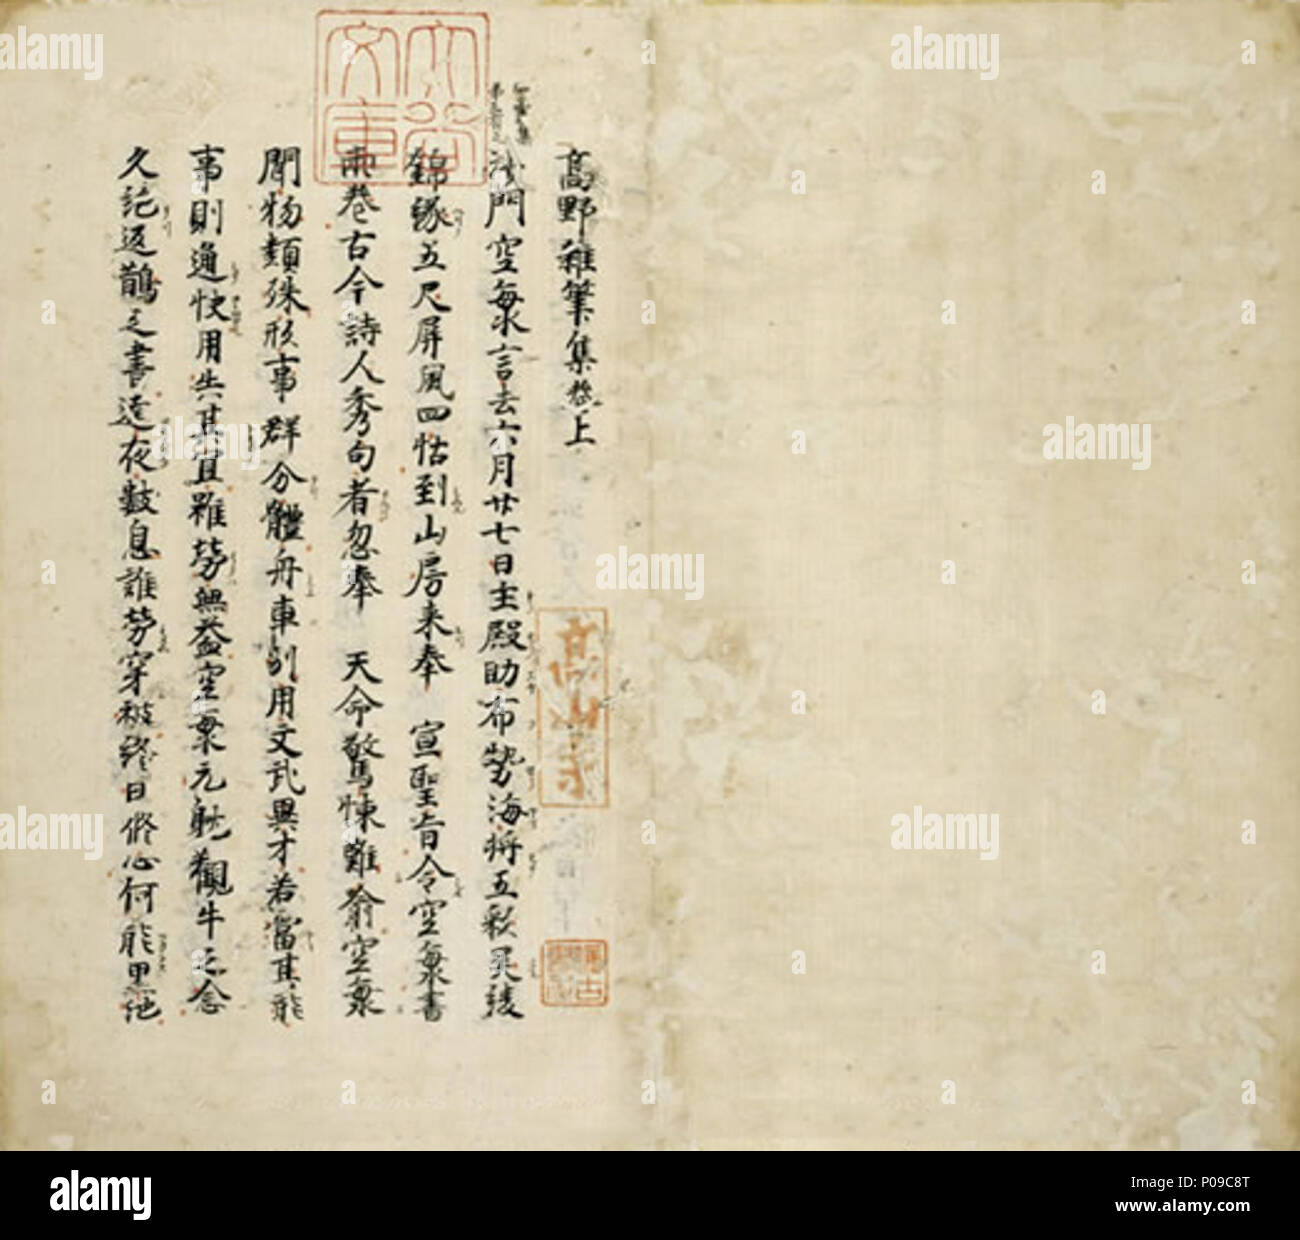 高野雜筆集卷上
沙門空海言去六月廿七日主殿助布勢海將五彩吳綾
錦緣五尺屏風四帖到山房來奉 宣聖旨令空海書
兩卷古今詩人秀句者忽奉 天命驚悚難喻空海
聞物類殊形事群分體舟車別用文武異才若當其能
事則通快用失其宜雖勞無益空海元耽觀牛之念
久絕返鵲之書達夜數息誰勞穿被終日修心何能墨池
高山寺
alamy
Image ID: P09C8T
www.alamy.com